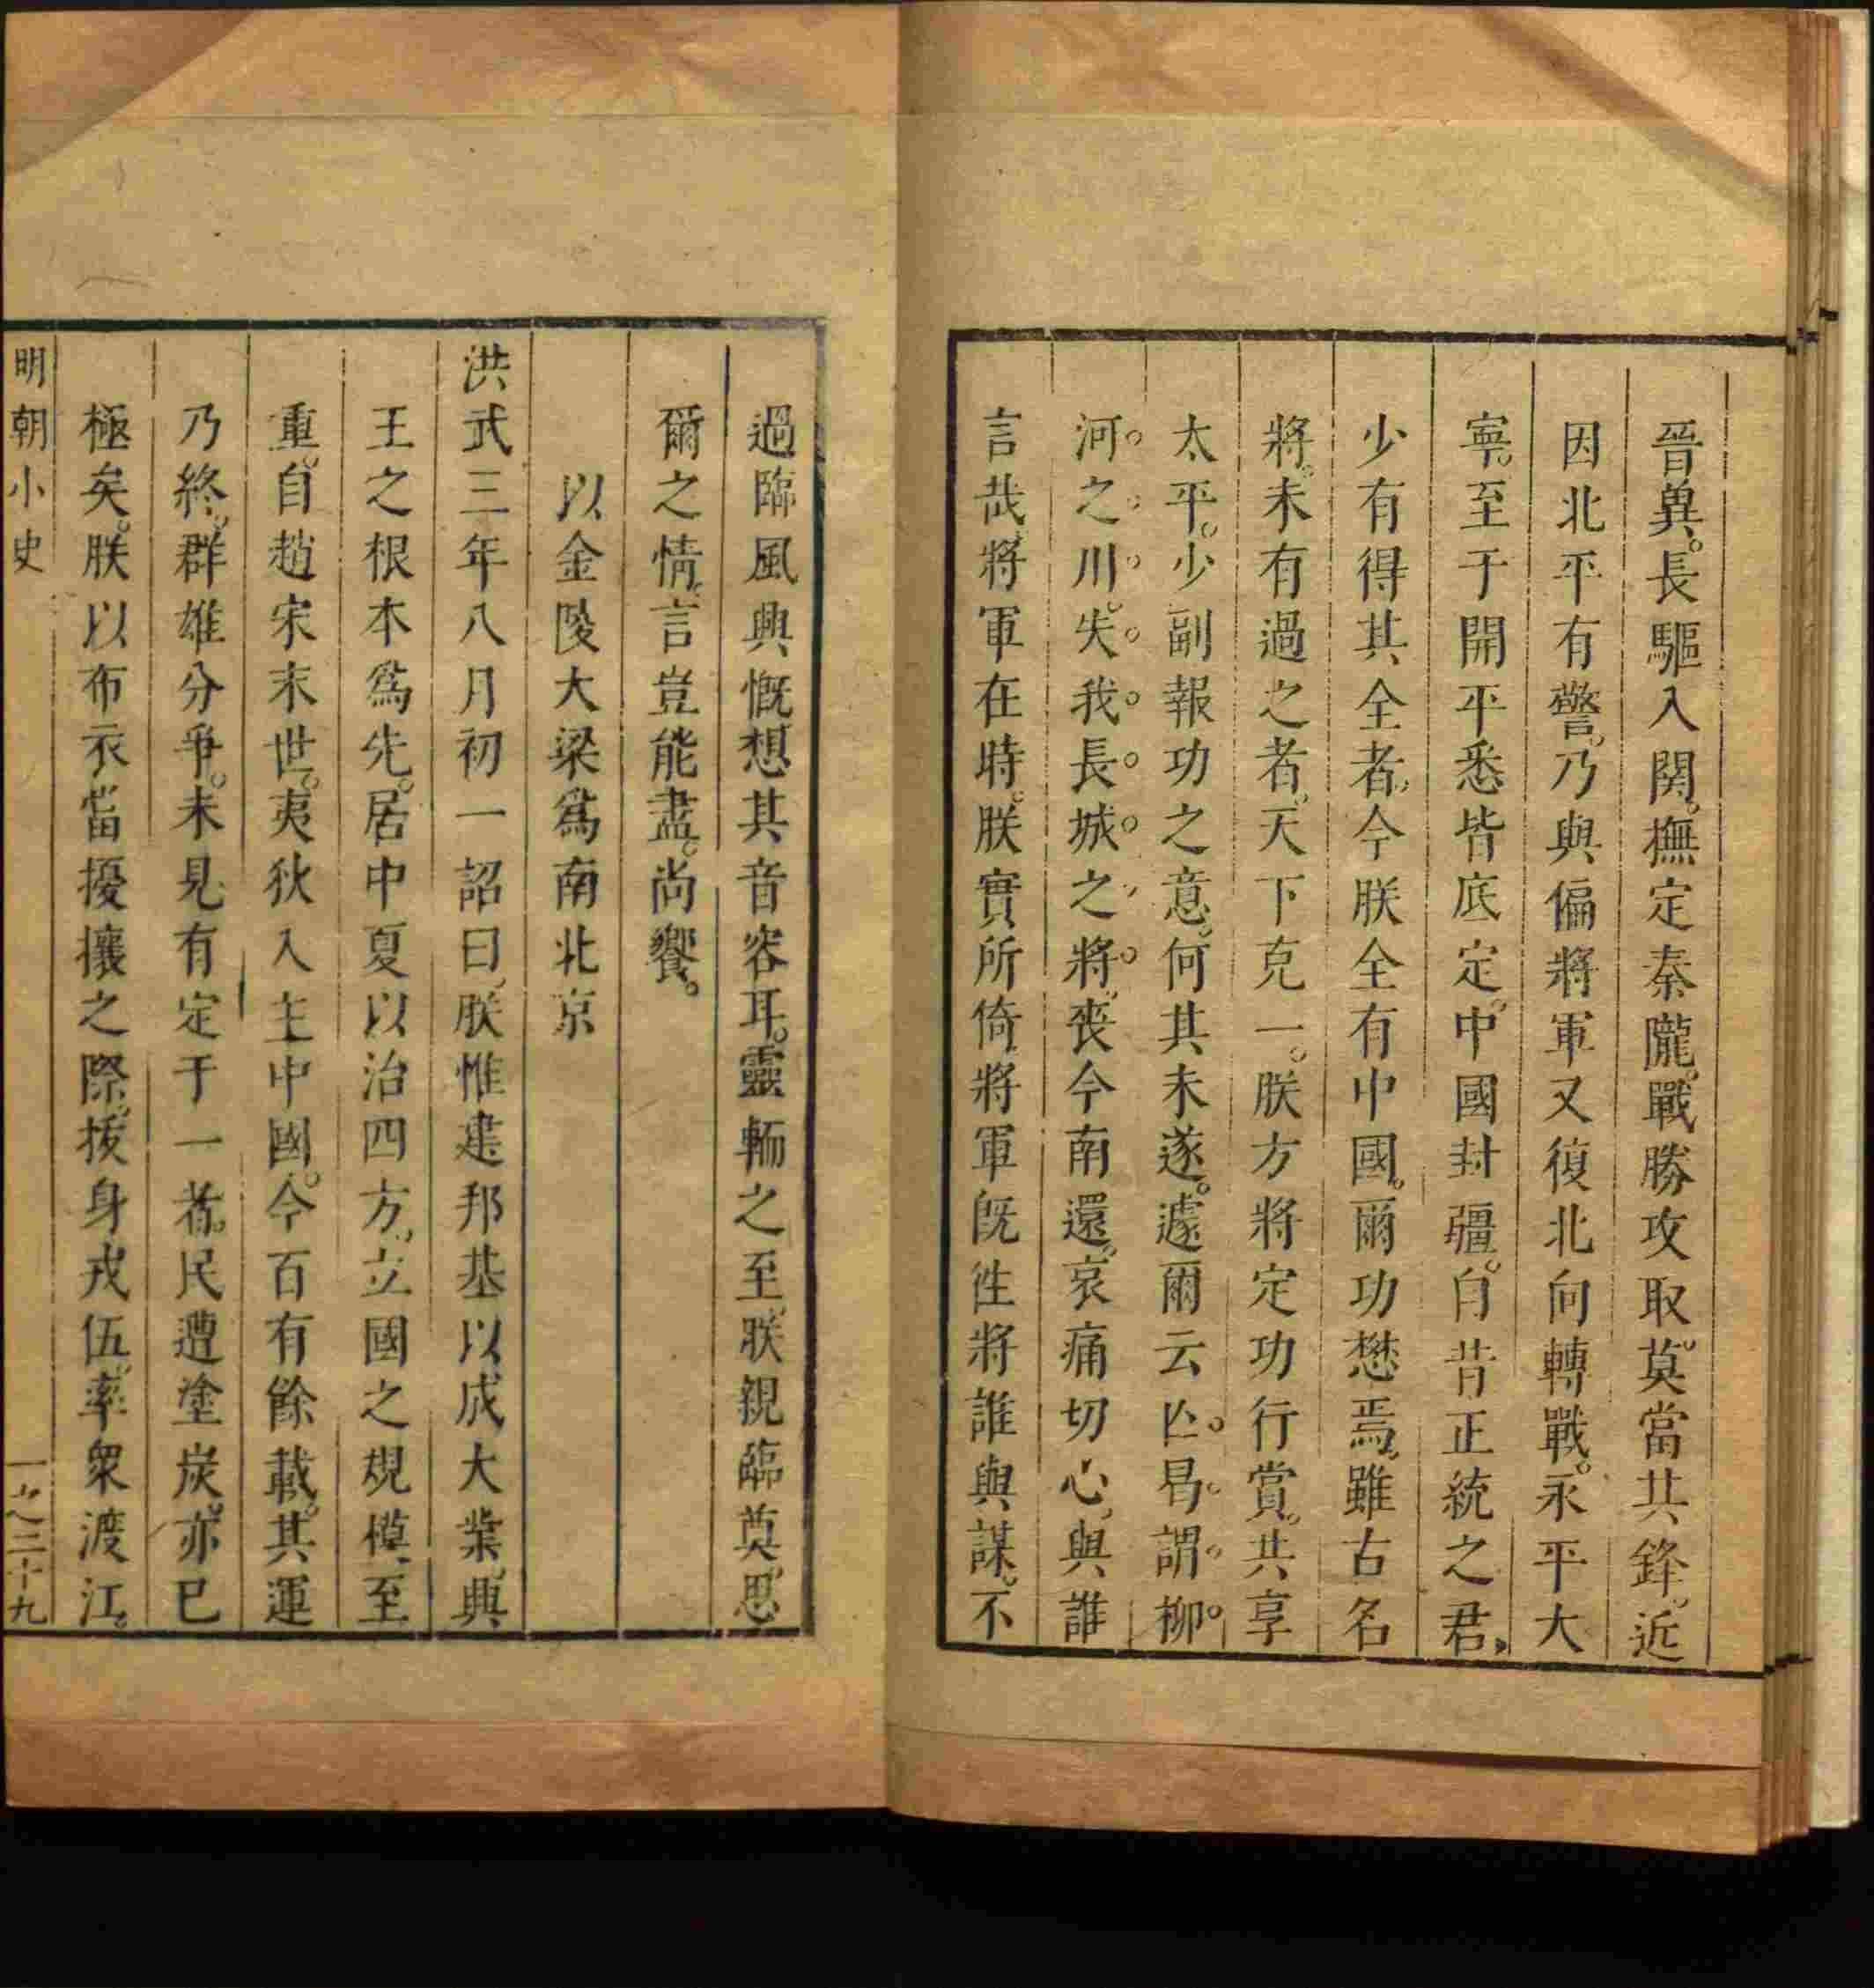 晉冀。長驅入関。撫定秦隴。戰勝攻取。莫當其鋒。近
因北平有警。乃與偏將軍又復北向轉戰。永平大
寧。至于開平悉皆底定。中國封疆。自昔正統之君、
少有得其全者。今朕全有中國。爾功懋焉。雖古名
將。未有過之者。天下克一。朕方將定功行賞。共享
太平。少副報功之意。何其未遂。遽爾云亡。曷謂柳
河之川。失我長城之將。喪今南還。哀痛切心。與誰
言哉。將軍在時。朕實所倚。將軍既徃將誰與謀。不
過臨風興慨想其音容耳。靈輀之至。朕親臨奠。思
爾之情。言豈能盡。尚饗。
以金陵大梁爲南北京
洪武三年八月初一詔曰。朕惟建邦基以成大業。興
王之根本爲先。居中夏以治四方。立國之規模、至
重。自趙宋末世。夷狄入主中國。今百有餘載。其運
乃終。群雄分爭。未見有定于一者。民遭塗炭。亦已
極矣。朕以布衣當擾攘之際。援身戎伍。率衆渡江。
明朝小史
一之二十九